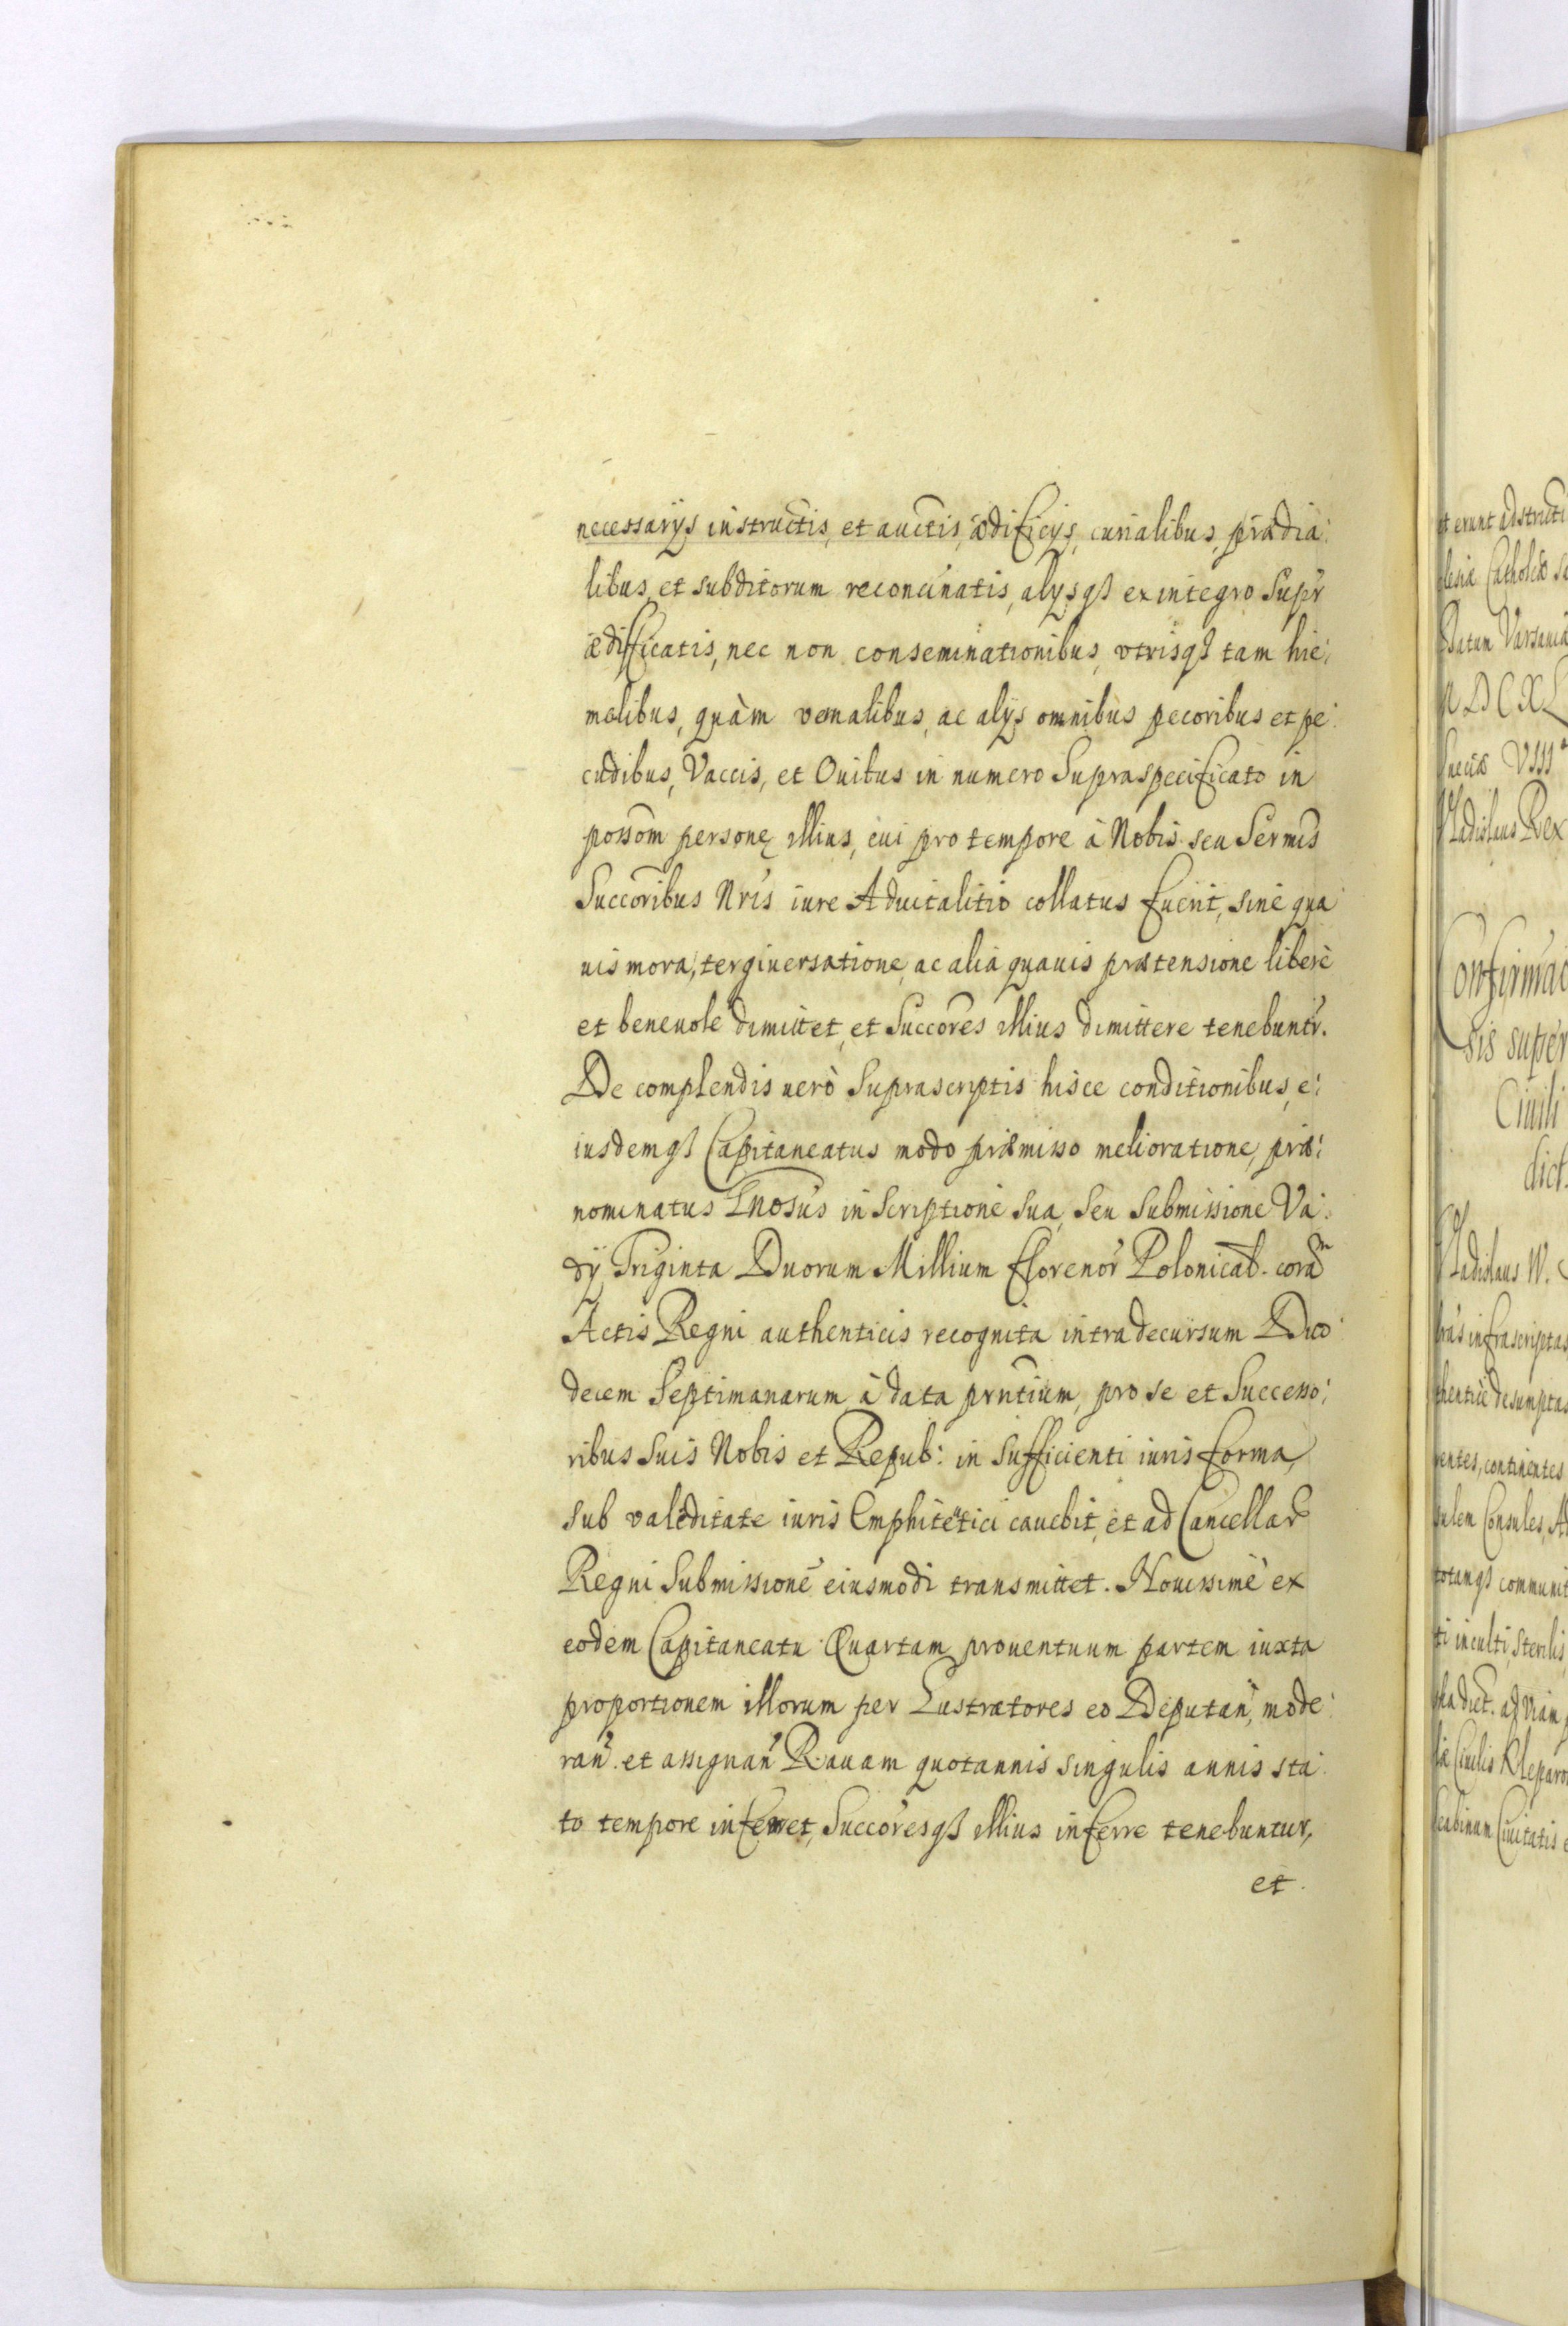 necessarÿs instructis, et auctis, ædificÿs, curialibus, prædia:
libus, et subditorum reconcinatis, alÿsqȝ ex integro Supr
ædifficatis, nec non conseminationibus, vtrisqȝ tam hie:
malibus, quàm vernalibus, ac alÿs omnibus pecoribus et pe:
cudibus, Vaccis, et Ouibus in numero Supraspecificato in
possom personę illius, cui pro tempore à Nobis seu Sermis
Succoribus Nris iure Aduitalitio collatus fuerit, sine qua
uis mora, tergiuersatione, ac alia quauis prætensione liberè
et beneuolè dimittet, et Succores illius dimittere tenebuntr.
De complendis uerò Suprascriptis hisce conditionibus, e:
iusdemqȝ Capitaneatus modo præmisso melioratione, præ:
nominatus Gnosus inscriptione Sua, Seu Submissione Va:
dÿ Triginta Duorum Millium florenor Polonical. coram
Actis Regni authenticis recognita intra decursum Duo:
decem Septimanarum à data prntium, pro se et Successo:
ribus Suis Nobis et Repub: in sufficienti iuris forma,
sub valeditate iuris Emphitetici cauebit, et ad Cancellar
Regni Submissionē eiusmodi transmittet. Nouissimè ex
eodem Capitaneatu Quartam prouentuum partem iuxta
proportionem illorum per Lustratores eo Deputan, mode:
ran. et assignan Rauam quotannis singulis annis sta
to tempore inferret, Succoresqȝ illius inferre tenebuntur,
et.
t erunt adstricti
lesiæ Catholicæ
Datum Varsauiæ
M D C X L
Sueciæ VIII
Vladislaus Rex
Confirmac
sis super
Ciuili
dict.
Vladislaus IV.
bras infrascriptas
thenticè desumptas
nentes, continentes
sulem Consules,
totamqȝ communit
ti inculti, Sterilis
pla dict. ad Viam
iæ Ciuilis Klepardi
scabinum Ciuitatis